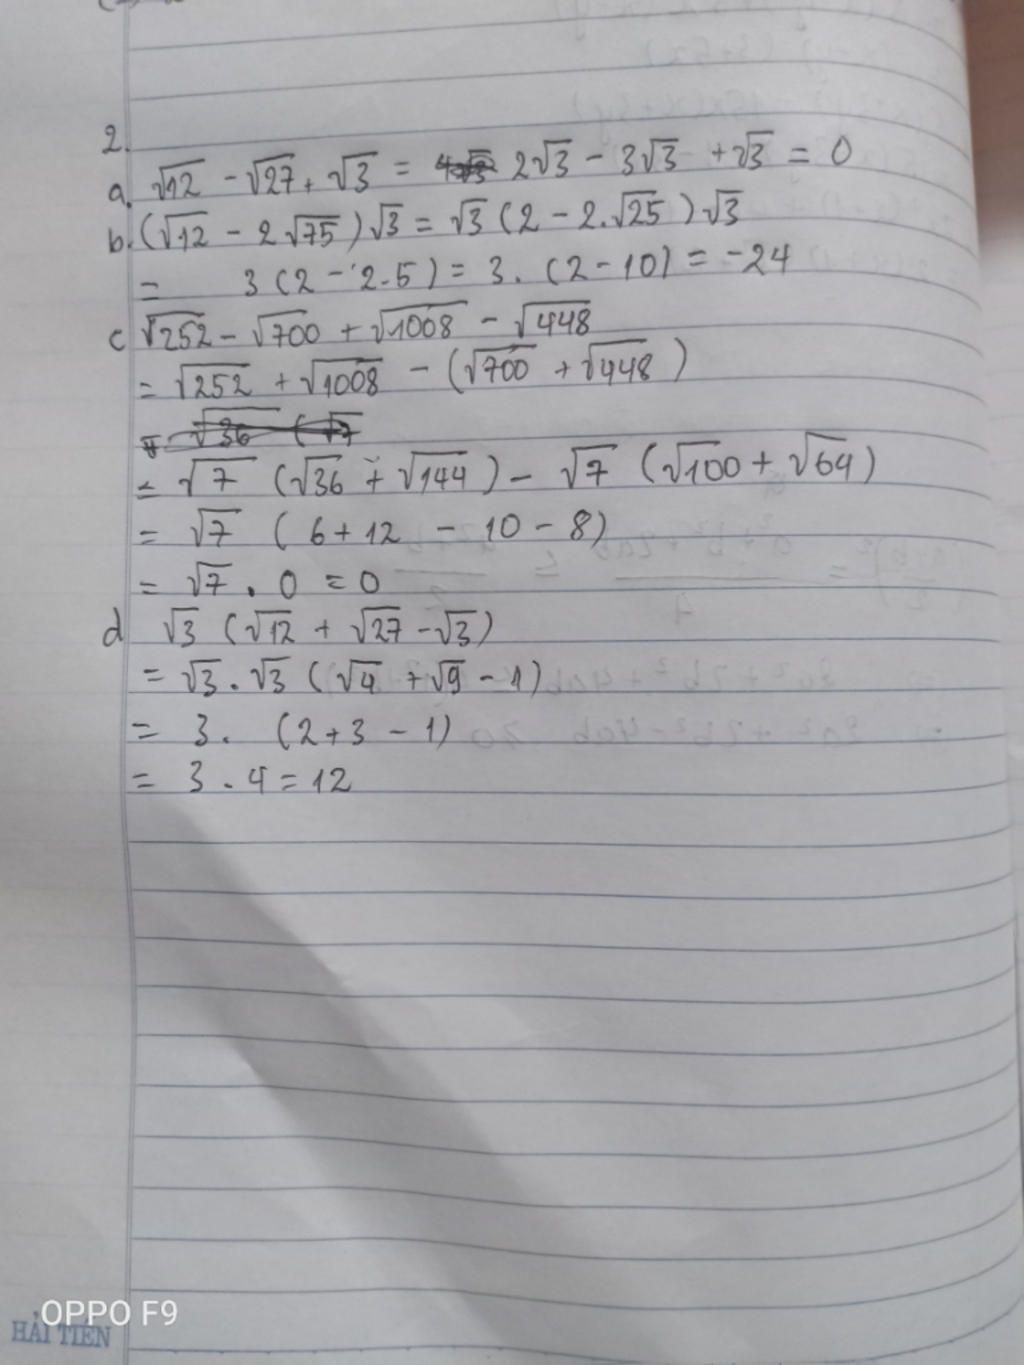 2.
a. √12 - √27 + √3 = 2√3 - 3√3 + √3 = 0
b. (√12 - 2√75)√3 = √3 (2 - 2.√25)√3
= 3(2 - 2.5) = 3. (2-10) = -24
c √252 - √700 + √1008 - √448
= √252 + √1008 - (√700 + √448)
= √36 (√7
= √7 (√36 + √144) - √7 (√100 + √64)
= √7 (6+12 - 10 - 8)
= √7 . 0 = 0
d √3 (√12 + √27 - √3)
= √3 . √3 (√4 + √9 - 1)
= 3. (2+3 - 1)
= 3 . 4 = 12
OPPO F9
HẢI TIẾN